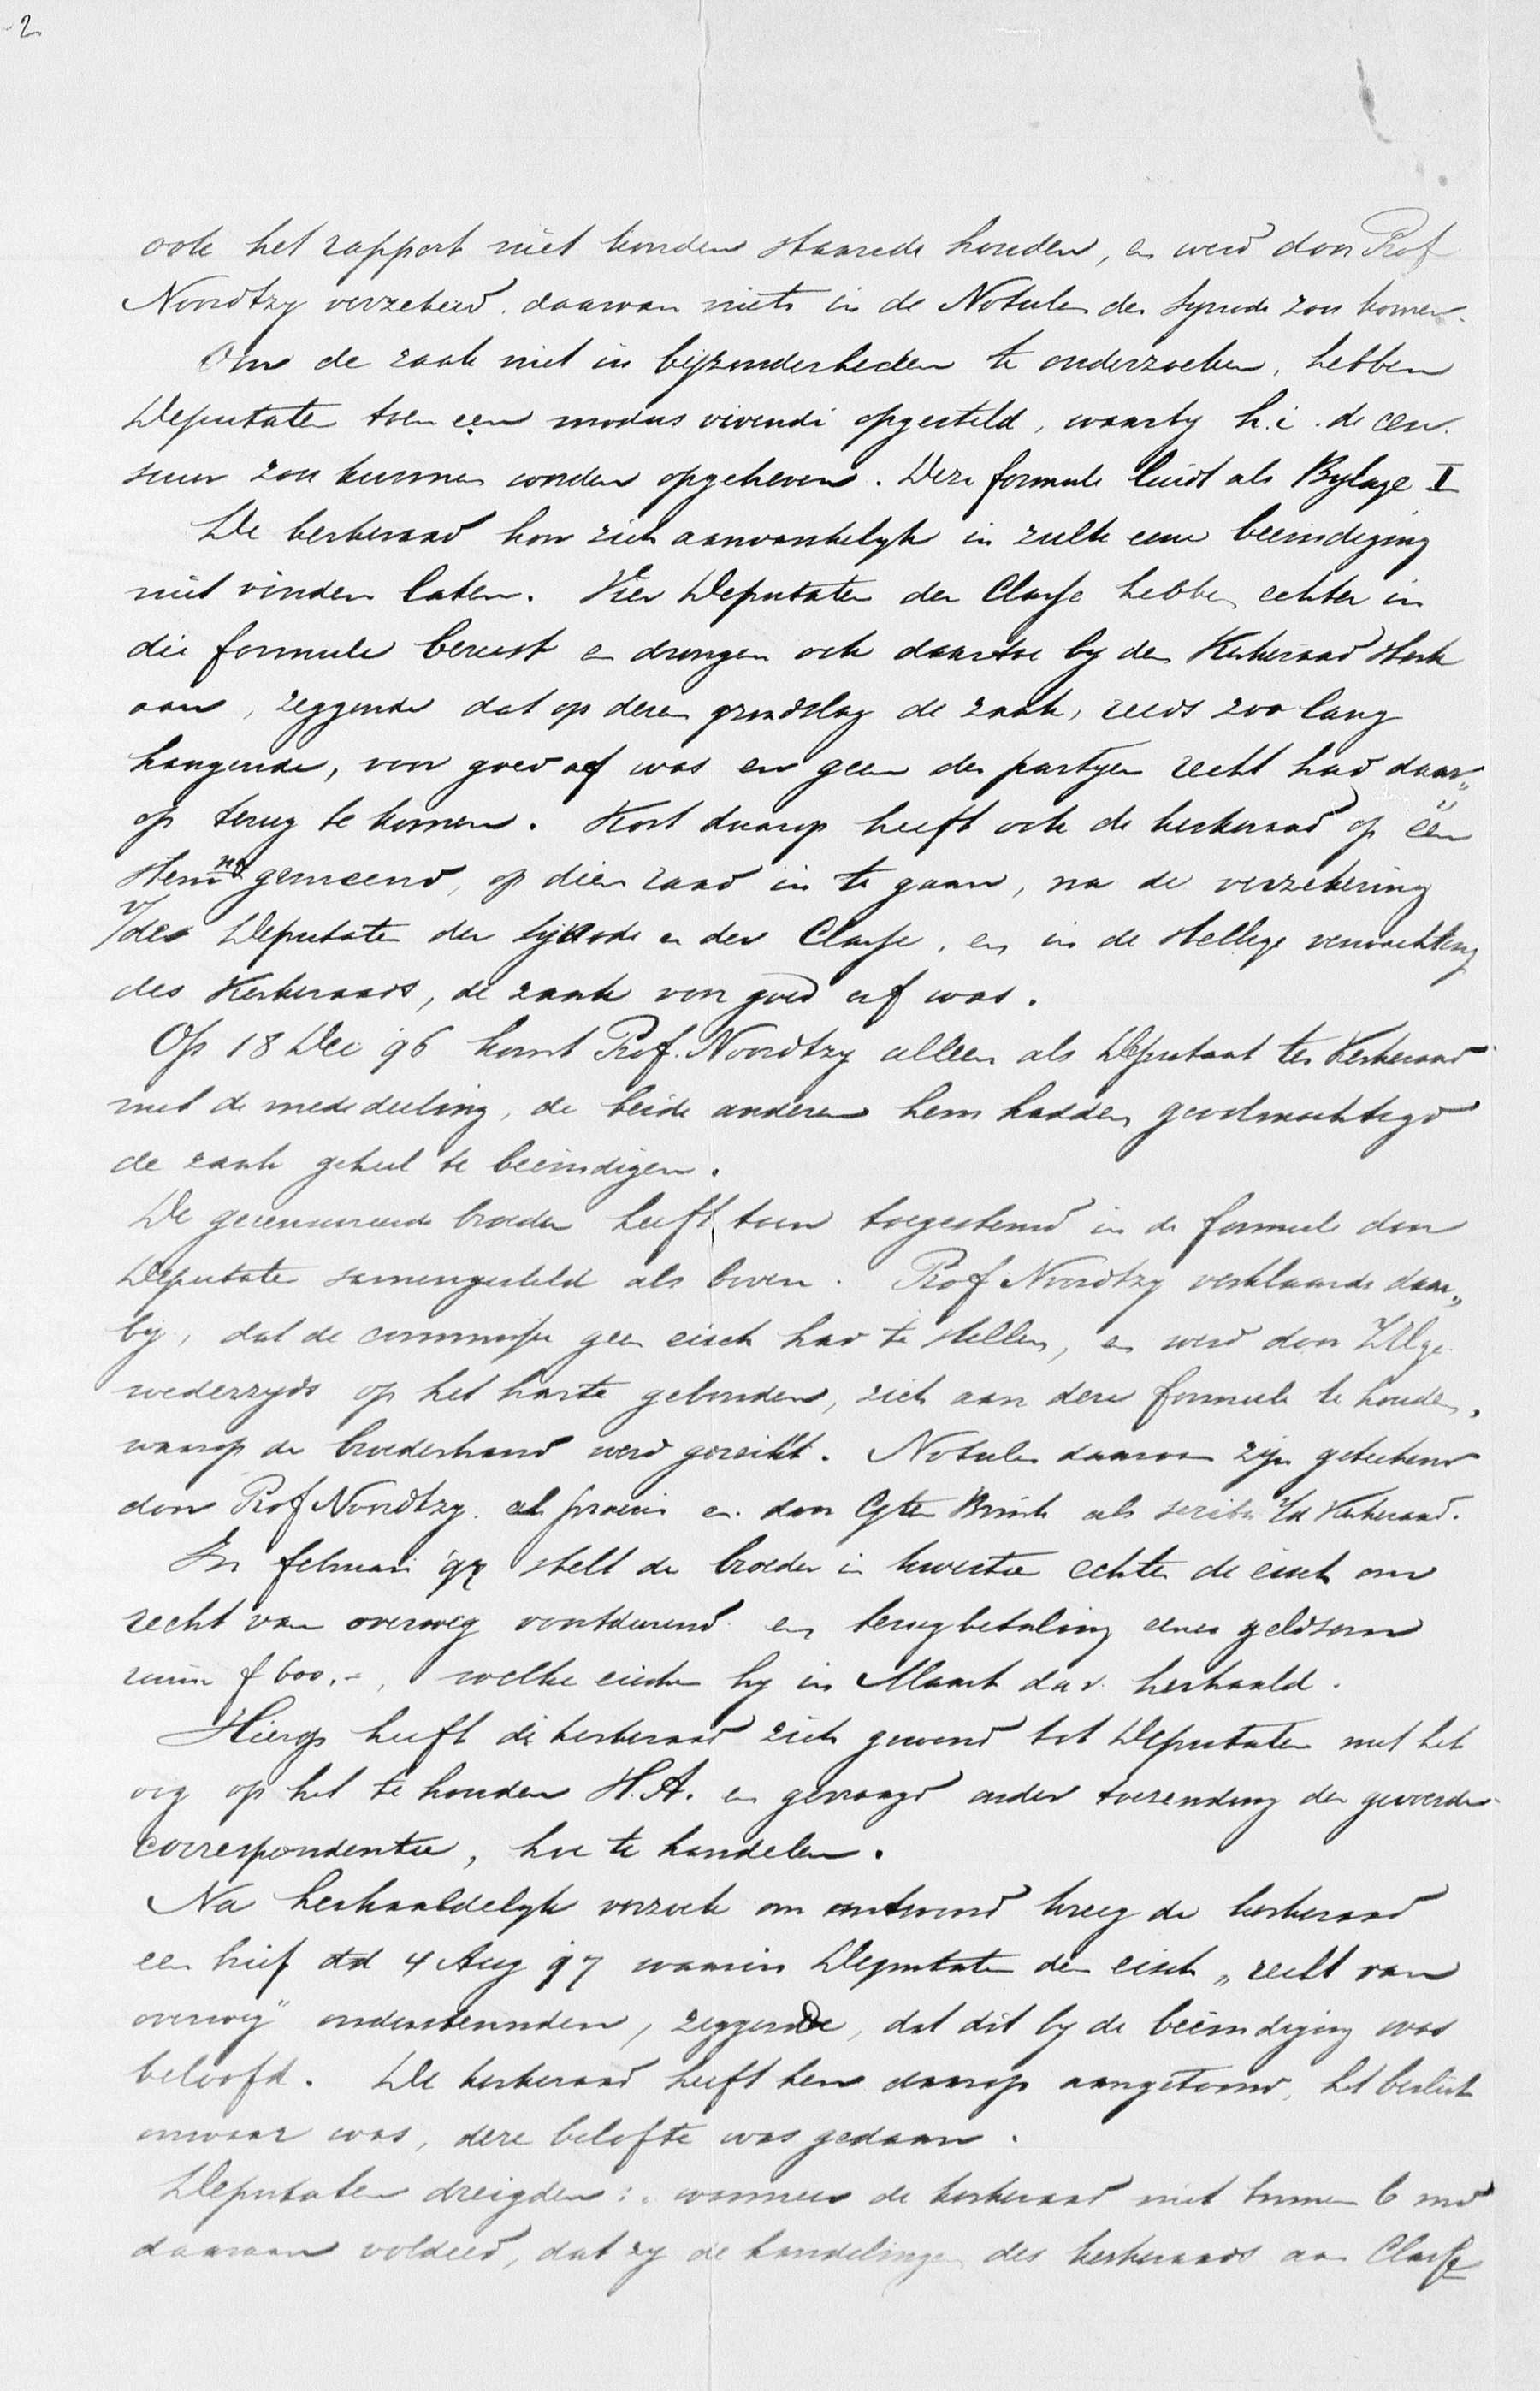 2
ook het rapport niet konden staande houden, en werd door Prof
Noordtzy verzekerd daarvan niets in de Notulen der Synode zou komen.
Om de zaak niet in byzonderheden te onderzoeken, hebben
Deputaten toen een modus vivendi opgesteld, waarby h.i. de cen-
suur zou kunnen worden opgeheven. Deze formule luidt als Bylage II
De kerkeraad kon zich aanvankelyk in zulk eene beeindiging
niet vinden laten. Vier Deputaten der Classe hebben echter in
die formule berust en drongen ook daartoe by den Kerkeraad sterk
aan, zeggende dat op dezen grondslag de zaak, reeds zoo lang
hangende, voor goed af was en geen der partyen recht had daar„
op terug te komen. Kort daarop heeft ook de kerkeraad op één
stem na gemeend, op dien raad in te gaan, na de verzekering
v/des Deputaten der Synode en der Classe, en in de stellige verwachting
des Kerkeraads, de zaak voor goed af was.
Op 18 Dec 96 komt Prof. Noordtzy alleen als Deputaat ter Kerkeraad
met de mededeeling, de beide anderen hem hadden gevolmachtigd
de zaak geheel te beeindigen.
De gecensureerde broeder heeft toen toegestemd in de formule door
Deputaten samengesteld als boven. Prof Noordtzy verklaarde daar„
by, dat de commissie geen eisch had te stellen, en werd door ZHge.
wederzyds op het harte gebonden, zich aan deze formule te houden,
waarop de broederhand werd gereikt. Notulen daarvan zijn geteekend
door Prof Noordtzy als praeses en door G ten Brink als scriba v/d Kerkeraad.
In februari 97 stelt de broeder in kwestie echter de eisch om
recht van overweg voortdurend en terugbetaling eener geldsom
ruim f 600.-, welke eischen hy in Maart d.a.v. herhaald.
Hierop heeft de kerkeraad zich gewend tot Deputaten met het
oog op het te houden H.A. en gevraagd onder toezending der gevoerde
correspondentie, hoe te handelen.
Na herhaaldelyk verzoek om antwoord kreeg de kerkeraad
een brief dd 4 Aug 97 waarin Deputaten den eisch „recht van
overweg" ondersteunden, zeggende, dat dit by de beëindiging was
beloofd. De kerkeraad heeft hen daarop aangetoond, het beslist
onwaar was, deze belofte was gedaan.
Deputaten dreigden: wanneer de kerkeraad niet binnen 6 md
daaraan voldeed, dat zy de handelingen des kerkeraads aan Classe